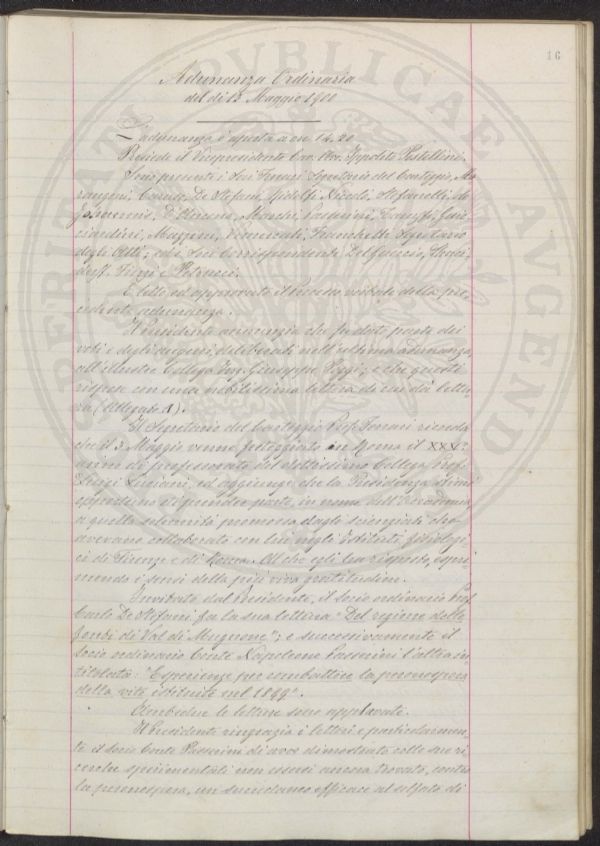 16
Adunanza Ordinaria
del dì 13 Maggio 1900
L'adunanza è aperta a ore 14.20
Presiede il Vicepresidente Cav. Avv. Ippolito Pestellini.
Sono presenti i Soci Ferrari Segretario del Carteggio, Ma
rangoni, Caruso, De Stefani, Ridolfi, Niccoli, Stefanelli, de
D'Ancona, Passerini, Guic
ciardini, Mazzini, Vimercati, Franchetti Segretario
degli Atti; ed i Soci Corrispondenti Del Guercio,
e Petrucci.
È letto ed approvato il Processo verbale della pre
cedente adunanza.
Il Presidente annunzia che fu data parte dei
voti e degli auguri deliberati nell'ultima adunanza,
all'illustre Collega Ing. Giuseppe e che questi
rispose con una nobilissima lettera di cui dà lettu
ra (Allegato 1).
Il Segretario del Carteggio Prof. Ferrari ricorda
che il 3 Maggio venne festeggiato in Roma il XXV°
anno di professorato del dottissimo Collega Prof.
Luigi Luciani, ed aggiunge che la Presidenza stimò
opportuno di prendere parte, in nome dell'Accademia,
a quella solennità promossa dagli scienziati che
avevano collaborato con lui negli Istituti fisiologi
ci di Firenze e di Roma. Al che egli ha risposto, espri
mendo i sensi della più viva gratitudine.
Invitato dal Presidente, il Socio ordinario Prof.
Carlo De Stefani fa la sua lettura "Del regime delle
fonti di Val di Mugnone"; e successivamente il
Socio ordinario Conte Napoleone Passerini l'altra in
titolata: "Esperienze per combattere la peronospora
della vite istituite nel 1899".
Ambedue le letture sono applaudite.
Il Presidente ringrazia i lettori e particolarmen
te il Socio Conte Passerini di aver dimostrato colle sue ri
cerche sperimentali non essersi ancora trovato, contro
la peronospora, un succedaneo efficace al solfato di